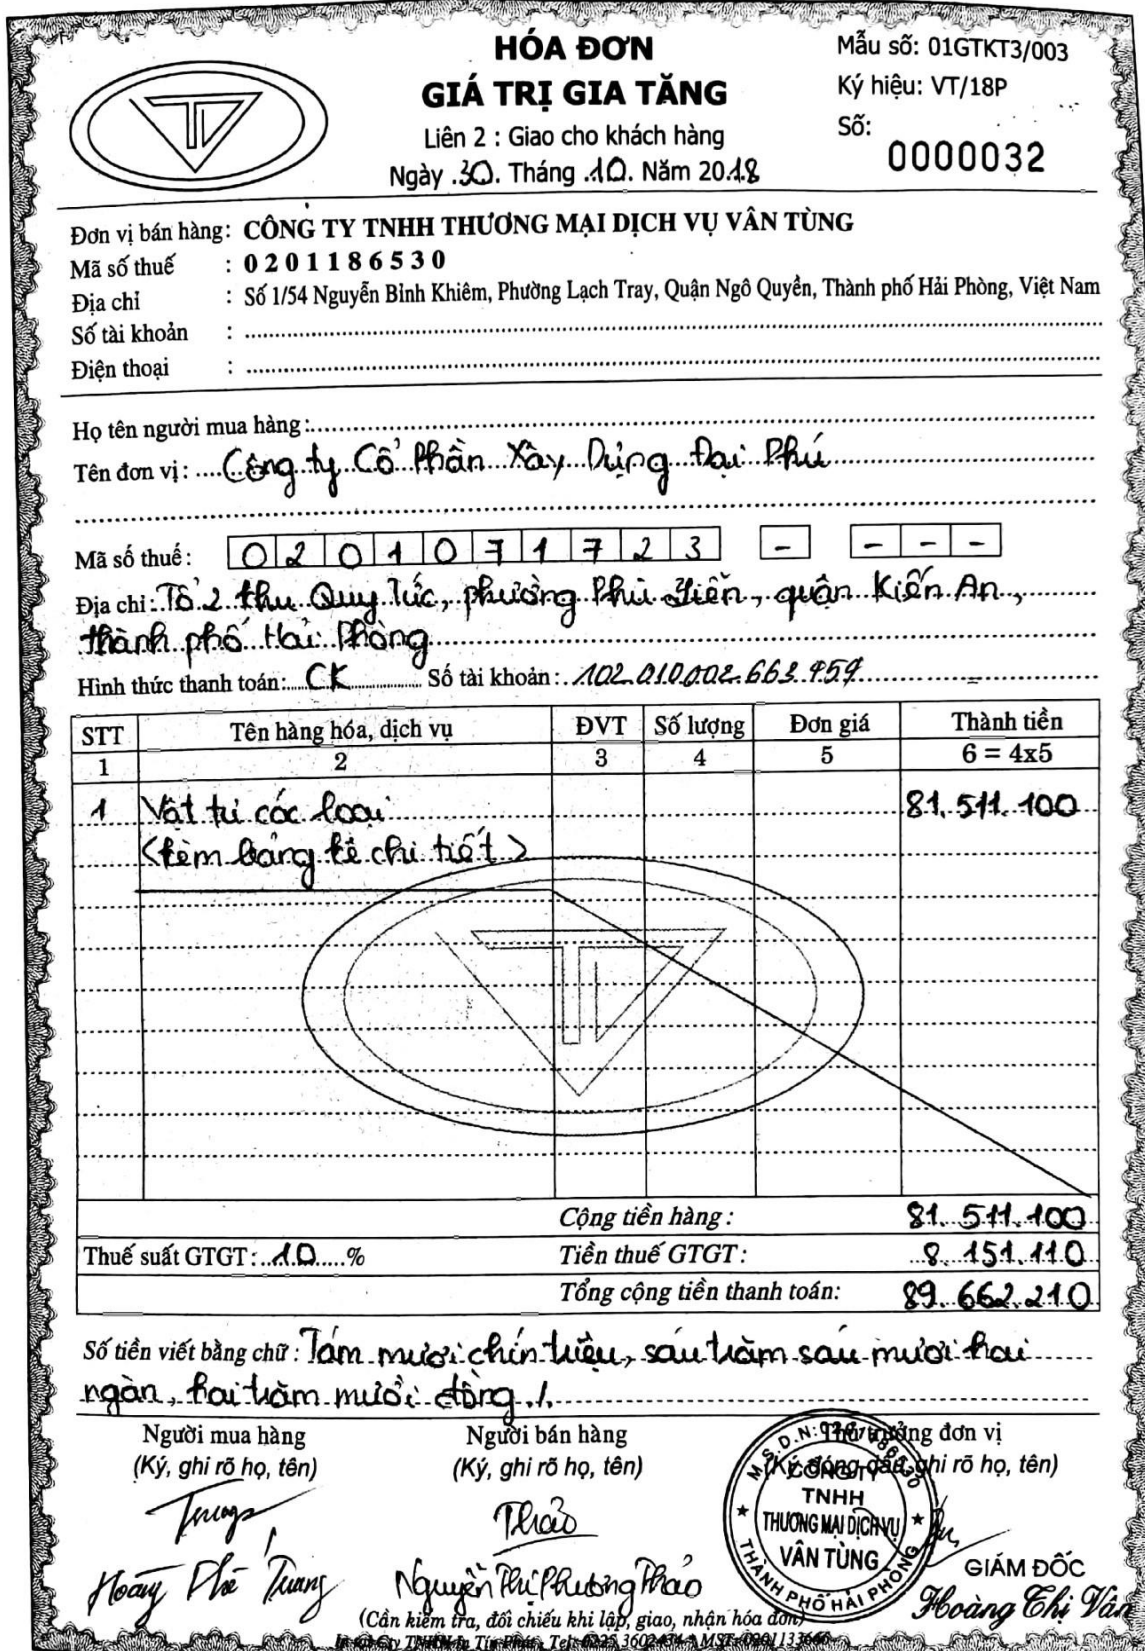 HÓA ĐƠN
GIÁ TRỊ GIA TĂNG
Liên 2 : Giao cho khách hàng
Ngày .30. Tháng .10. Năm 2018
Mẫu số: 01GTKT3/003
Ký hiệu: VT/18P
Số: 0000032
Đơn vị bán hàng: CÔNG TY TNHH THƯƠNG MẠI DỊCH VỤ VÂN TÙNG
Mã số thuế : 0201186530
Địa chỉ : Số 1/54 Nguyễn Bỉnh Khiêm, Phường Lạch Tray, Quận Ngô Quyền, Thành phố Hải Phòng, Việt Nam
Số tài khoản :
Điện thoại :
Họ tên người mua hàng:
Tên đơn vị: Công ty Cổ Phần Xây Dựng Đại Phú
Mã số thuế: 0201071723 - - - -
Địa chỉ: Tổ 2 khu Quy Tức, phường Phù Liễn, quận Kiến An,
thành phố Hải Phòng
Hình thức thanh toán: CK Số tài khoản: 102.010.002.663.959
STT Tên hàng hóa, dịch vụ ĐVT Số lượng Đơn giá Thành tiền
1 2 3 4 5 6 = 4x5
1 Vật tư các loại 81.511.100
(kèm bảng kê chi tiết)
Cộng tiền hàng: 81.511.100
Thuế suất GTGT: 10 % Tiền thuế GTGT: 8.151.110
Tổng cộng tiền thanh toán: 89.662.210
Số tiền viết bằng chữ: Tám mươi chín triệu, sáu trăm sáu mươi hai
ngàn, hai trăm mười đồng ./.
Người mua hàng Người bán hàng Thủ trưởng đơn vị
(Ký, ghi rõ họ, tên) (Ký, ghi rõ họ, tên) (Ký, đóng dấu, ghi rõ họ, tên)
M.S.D.N:
CÔNG TY
TNHH
THƯƠNG MẠI DỊCH VỤ
VÂN TÙNG
THÀNH PHỐ HẢI PHÒNG
Thảo
GIÁM ĐỐC
Nguyễn Thị Phương Thảo
Hoàng Thị Vân
(Cần kiểm tra, đối chiếu khi lập, giao, nhận hóa đơn)